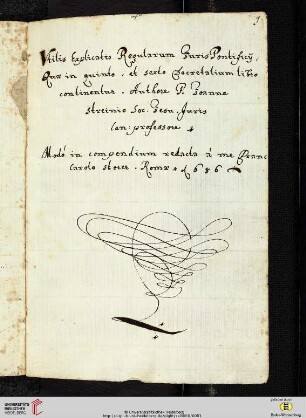 Utilis Explicatio Regularum Juris Pontificij,
Quæ in quinto, et sexto Decretalium libro
continentur. Authore P. Joanne
Streinio Soc. Jesu. Juris
Can: professore
Modò in compendium redacta à me Franc
Carolo Roma 1686
UNIVERSITÄTS
BIBLIOTHEK
HEIDELBERG
© Universitätsbibliothek Heidelberg